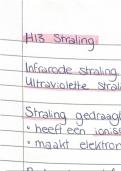 H13 Straling
Infrarode straling
Ultraviolette stral
Straling gedraag
• heeft een ion.is
• maakt elektron